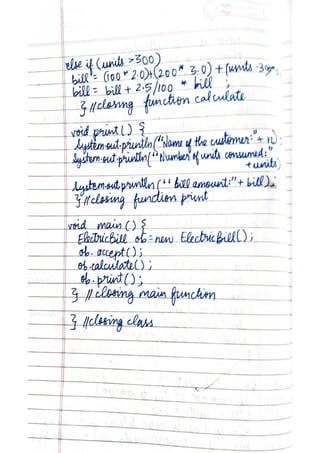 else if (units >300)
bill = (100 * 2.0)+(200 * 3.0) + (units -300
bill = bill + 2.5/100 * bill ;
} //closing function calculate
void print() {
System.out.println("Name of the customer:" + n);
System.out.println("Number of units consumed:"
+units)
System.out.println ("bill amount:"+ bill);
} //closing function print
void main () {
ElectricBill ob = new ElectricBill();
ob. accept();
ob.calculate();
ob.print();
} //closing main function
} //closing class